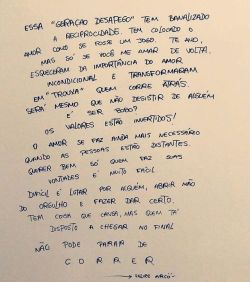 ESSA "GERAÇÃO DESAPEGO" TEM BANALIZADO
A RECIPROCIDADE. TEM COLOCADO O
AMOR COMO SE FOSSE UM JOGO. TE AMO,
MAS SÓ SE VOCÊ ME AMAR DE VOLTA!
ESQUECERAM DA IMPORTÂNCIA DO AMOR
INCONDICIONAL E TRANSFORMARAM
EM "TROUXA" QUEM CORRE ATRÁS.
SERÁ MESMO QUE NÃO DESISTIR DE ALGUÉM
É SER BOBO?
OS VALORES ESTÃO INVERTIDOS!
O AMOR SE FAZ AINDA MAIS NECESSÁRIO
QUANDO AS PESSOAS ESTÃO DISTANTES.
QUERER BEM SÓ QUEM FAZ SUAS
VONTADES É MUITO FÁCIL.
DIFÍCIL É LUTAR POR ALGUÉM, ABRIR MÃO
DO ORGULHO E FAZER DAR CERTO.
TEM COISA QUE CANSA, MAS QUEM TÁ
DISPOSTO A CHEGAR NO FINAL
NÃO PODE PARAR DE
C O R R E R